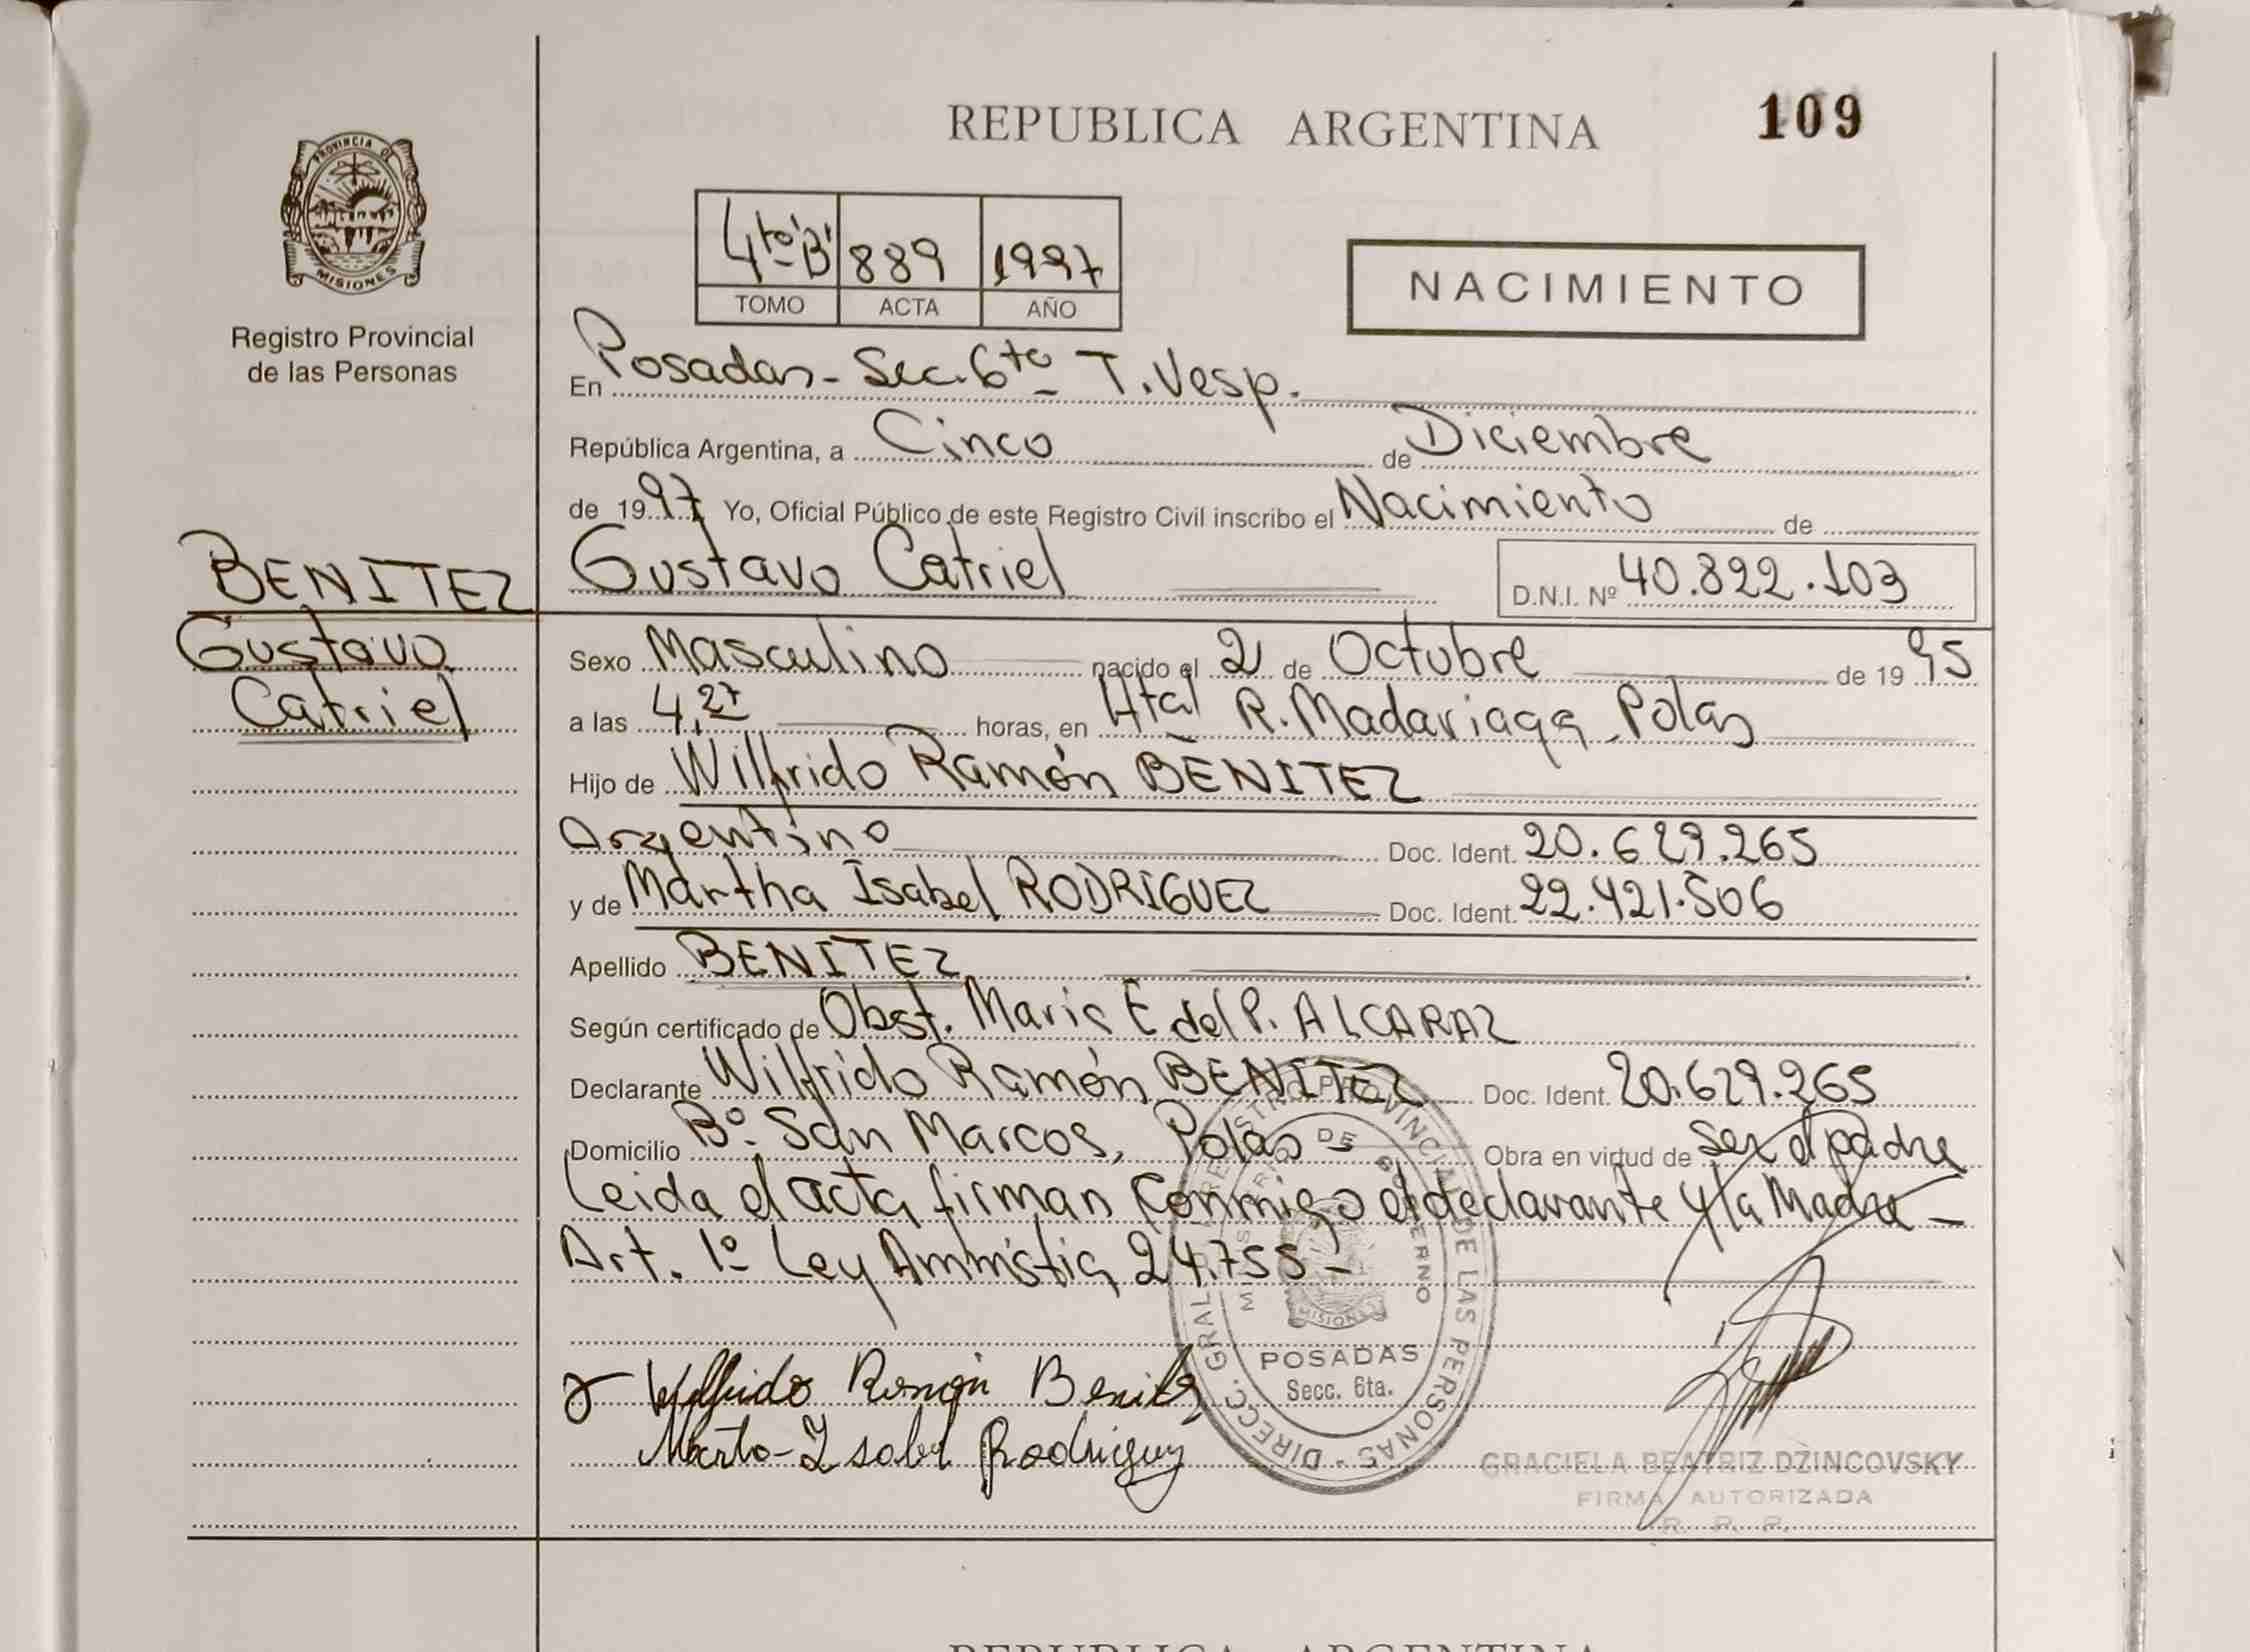 REPUBLICA ARGENTINA
109
PROVINCIA DE
MISIONES
Registro Provincial
de las Personas
4to "B" 889 1997
TOMO ACTA AÑO
NACIMIENTO
En Posadas - Sec. 6ta T. Vesp.
República Argentina, a Cinco de Diciembre
de 1997 Yo, Oficial Público de este Registro Civil inscribo el Nacimiento de
BENITEZ
Gustavo Catriel
D.N.I. Nº 40.822.103
Gustavo
Catriel
Sexo Masculino nacido el 2 de Octubre de 1995
a las 4,27 horas, en Htal R. Madariaga - Pdas
Hijo de Wilfrido Ramón BENITEZ
Argentino Doc. Ident. 20.629.265
y de Martha Isabel RODRIGUEZ Doc. Ident. 22.421.506
Apellido BENITEZ
Según certificado de Obst. Maria E del P. ALCARAZ
Declarante Wilfrido Ramón BENITEZ Doc. Ident. 20.629.265
Domicilio Bº San Marcos, Pdas - Obra en virtud de ser el padre
Leida el acta firman conmigo el declarante y la Madre -
Art. 1º Ley Amnistia 24.755 -
Wilfrido Ramón Benitez
Marta Isabel Rodriguez
DIRECC. GRAL. REGISTRO PROVINCIAL DE LAS PERSONAS
MINISTERIO DE GOBIERNO
MISIONES
POSADAS
Secc. 6ta.
GRACIELA BEATRIZ DZINCOVSKY
FIRMA AUTORIZADA
R. P. P.
REPUBLICA ARGENTINA